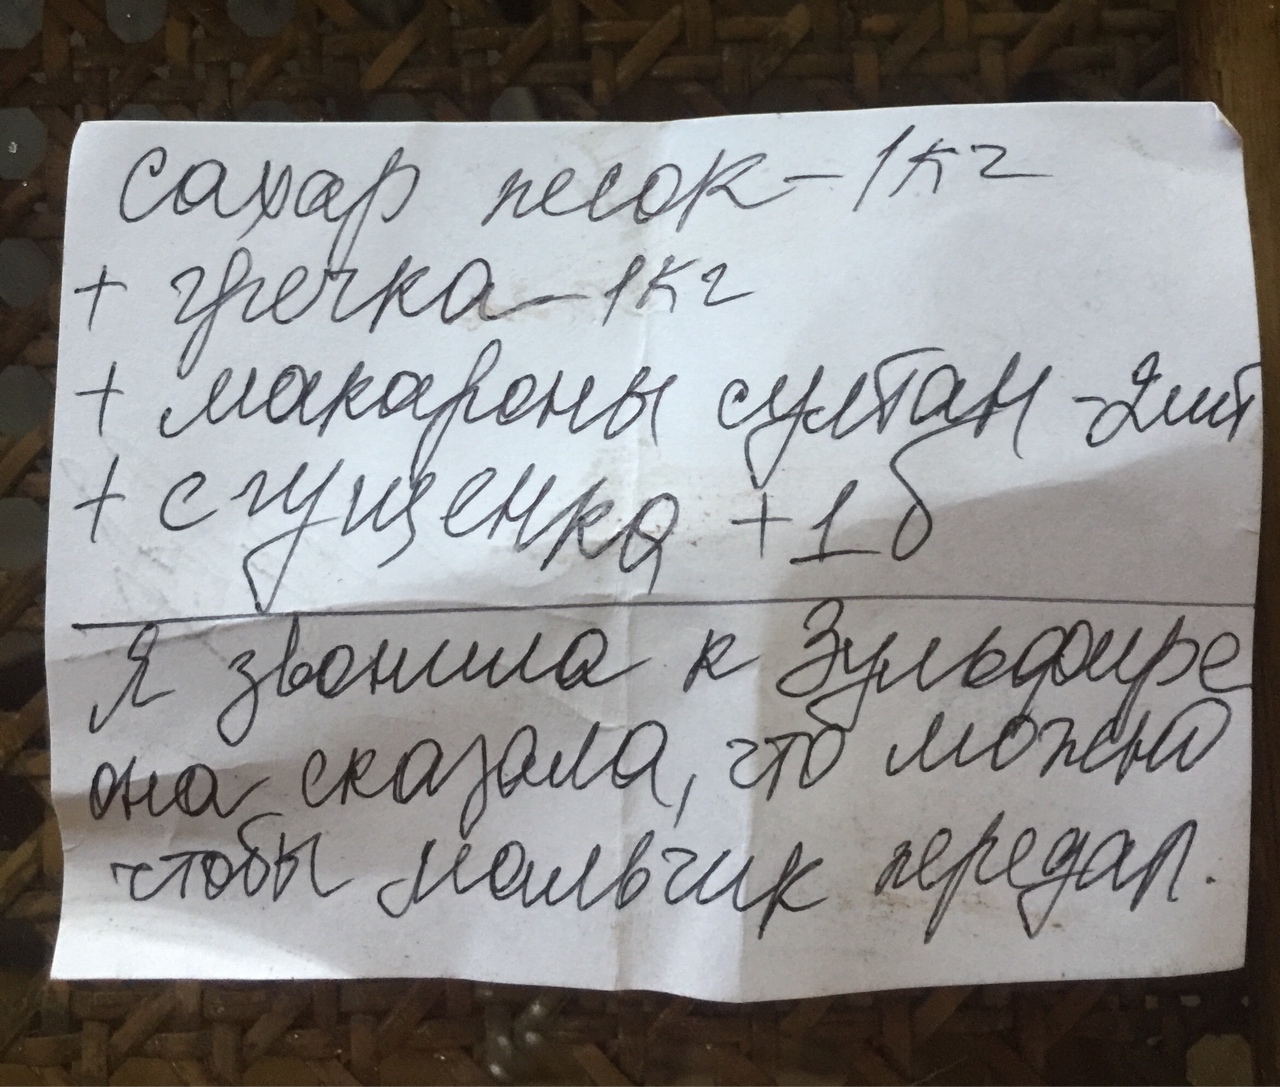 сахар песок - 1кг
+ гречка - 1кг
+ макароны султан - 2шт
+ сгущенка + 1 б
Я звонила к Зульфире
она сказала, что можно
чтобы мальчик передал.